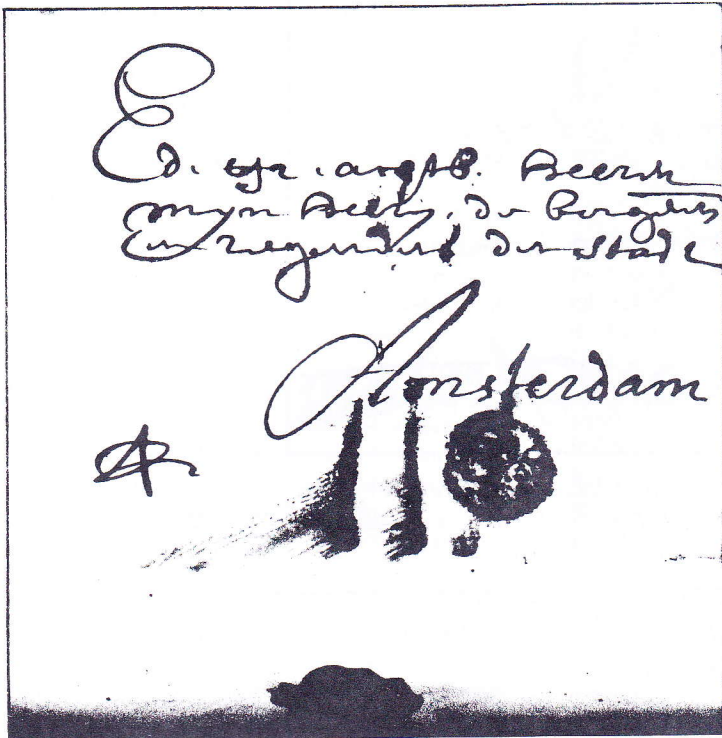 Ed. agtb. Heeren
mijn Heeren, de
en regeerders der stadt
Amsterdam